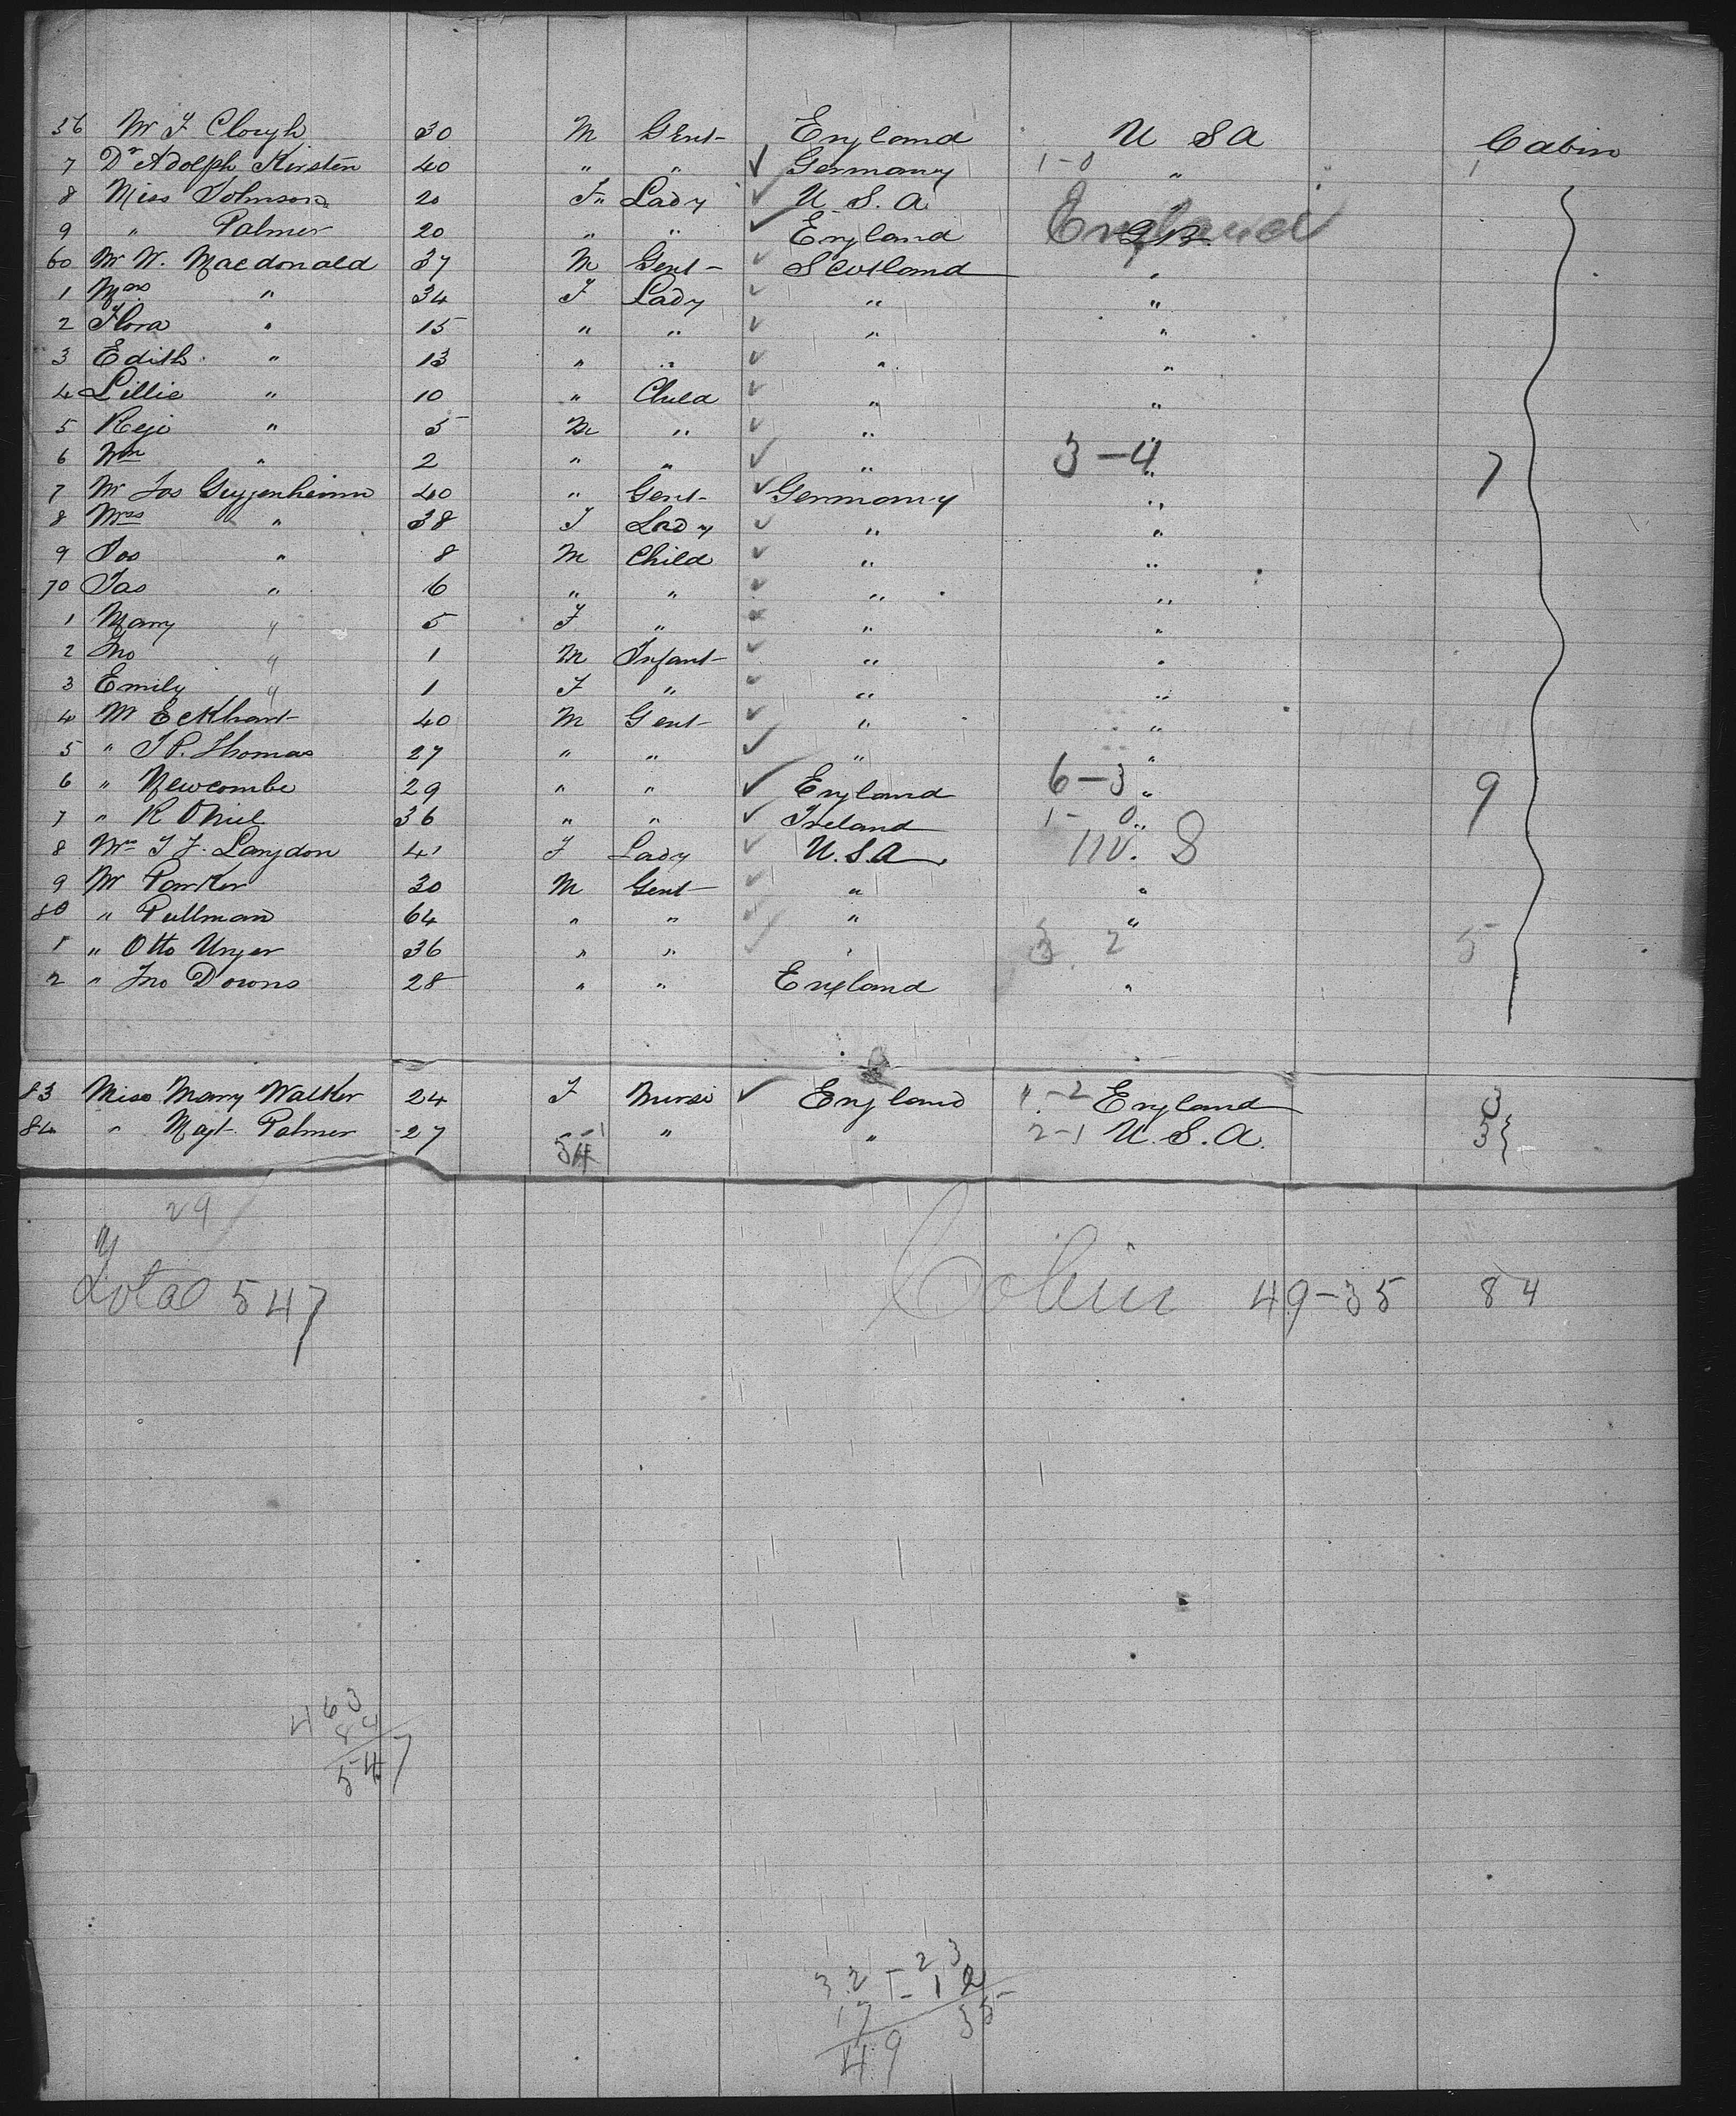 56 Mr F Clough 30 M Gent- England U S A Cabin
7 Dr Adolph Kirsten 40 " " ✓ Germany 1-0 " 1
8 Miss Johnson 20 F Lady ✓ U. S. A. "
9 " Palmer 20 " " ✓ England England
60 Mr W. Macdonald 37 M Gent- ✓ Scotland "
1 Mrs " 34 F Lady ✓ " "
2 Flora " 15 " " ✓ " "
3 Edith " 13 " " ✓ " "
4 Lillie " 10 " Child ✓ " "
5 Regi " 5 M " ✓ " "
6 Wm " 2 " " ✓ " 3-4 " 7
7 Mr Jos Guggenheimn 40 " Gent- ✓ Germany "
8 Mrs " 38 F Lady ✓ " "
9 Jos " 8 M Child ✓ " "
70 Jas " 6 " " ✓ " "
1 Mary " 5 F " ✓ " "
2 Jno " 1 M Infant ✓ " "
3 Emily " 1 F " ✓ " "
4 Mr Eckhart 40 M Gent ✓ " "
5 " J P. Thomas 27 " " ✓ " "
6 " Newcombe 29 " " ✓ England 6-3 " 9
7 " R ONiel 36 " " ✓ Ireland 1-0 "
8 Mrs T J. Langdon 41 F Lady ✓ U.S.A.
9 Mr Parker 30 M Gent ✓ " "
80 " Pullman 64 " " ✓ " "
1 " Otto Unger 36 " " ✓ " 3 2 5
2 " Jno Downs 28 " " England "
83 Miss Mary Walker 24 F Nurse ✓ England England 3
84 " Magt. Palmer 27 " " 2-1 U.S.A. 3
54
29
Total 547 Cabin 49-35 84
463
84
547
32 - 23
17 - 12
49 35